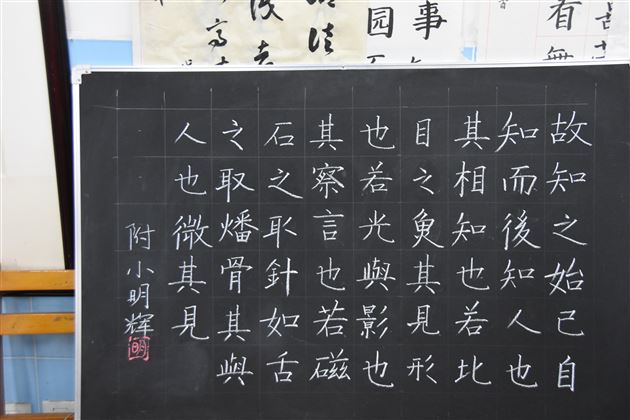 故知之始己自
知而後知人也
其相知也若比
目之𩵋其見形
也若光與影也
其察言也若磁
石之取針如舌
之取燔骨其與
人也微其見
附小明辉
明
看無
事
园